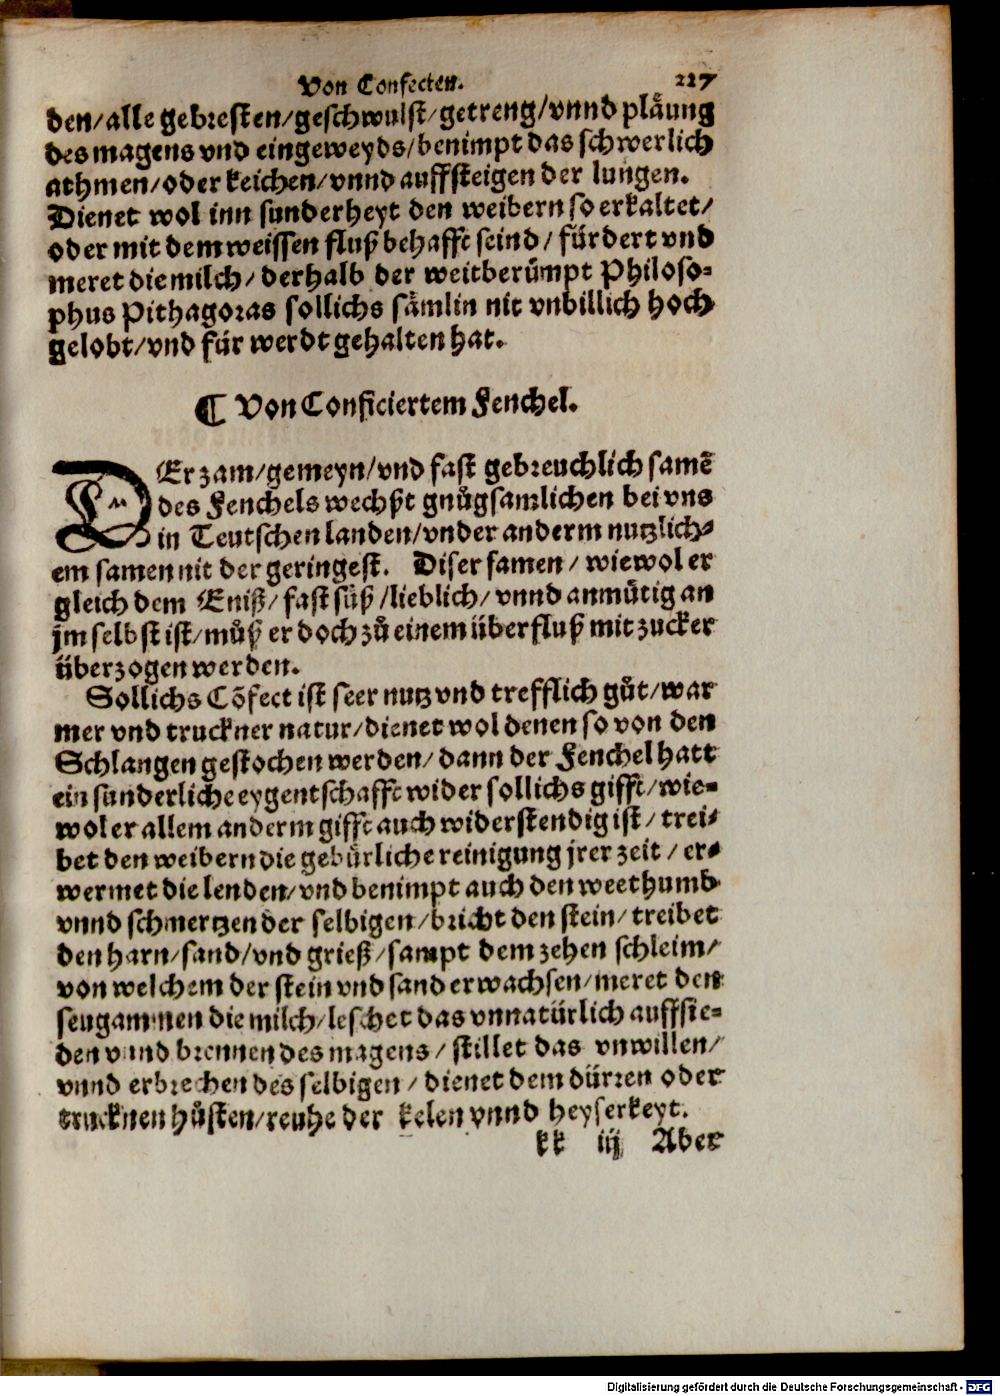 Von Confecten. 227
den/alle gebresten/geschwulst/getreng/vnnd pläung
des magens vnd eingeweyds/benimpt das schwerlich
athmen/oder keichen/vnnd auffsteigen der lungen.
Dienet wol inn sunderheyt den weibern so erkaltet/
oder mit dem weissen fluß behafft seind/ fürdert vnd
meret die milch/ derhalb der weitberümpt Philoso-
phus Pithagoras sollichs sämlin nit vnbillich hoch
gelobt/vnd für werdt gehalten hat.
¶ Von Conficiertem Fenchel.
DEr zam/gemeyn/vnd fast gebreuchlich samẽ
des Fenchels wechßt gnůgsamlichen bei vns
in Teutschen landen/vnder anderm nutzlich-
em samen nit der geringest. Diser samen/ wiewol er
gleich dem Eniß/ fast süß/lieblich/ vnnd anmütig an
jm selbst ist/ můß er doch zů einem überfluß mit zucker
überzogen werden.
Sollichs Cõfect ist seer nutz vnd trefflich gůt/war
mer vnd truckner natur/dienet wol denen so von den
Schlangen gestochen werden/ dann der Fenchel hatt
ein sunderliche eygentschafft wider sollichs gifft/wie-
wol er allem anderm gifft auch widerstendig ist/ trei-
bet den weibern die gebürliche reinigung jrer zeit/ er-
wermet die lenden/vnd benimpt auch den weethumb
vnnd schmertzen der selbigen/bricht den stein/ treibet
den harn/sand/vnd grieß/sampt dem zehen schleim/
von welchem der stein vnd sand erwachsen/meret den
seugammen die milch/leschet das vnnatürlich auffsie-
den vnnd brennen des magens/ stillet das vnwillen/
vnnd erbrechen des selbigen/ dienet dem dürren oder
trucknen hůsten/reuhe der kelen vnnd heyserkeyt.
kk iij Aber
Digitalisierung gefördert durch die Deutsche Forschungsgemeinschaft - DFG